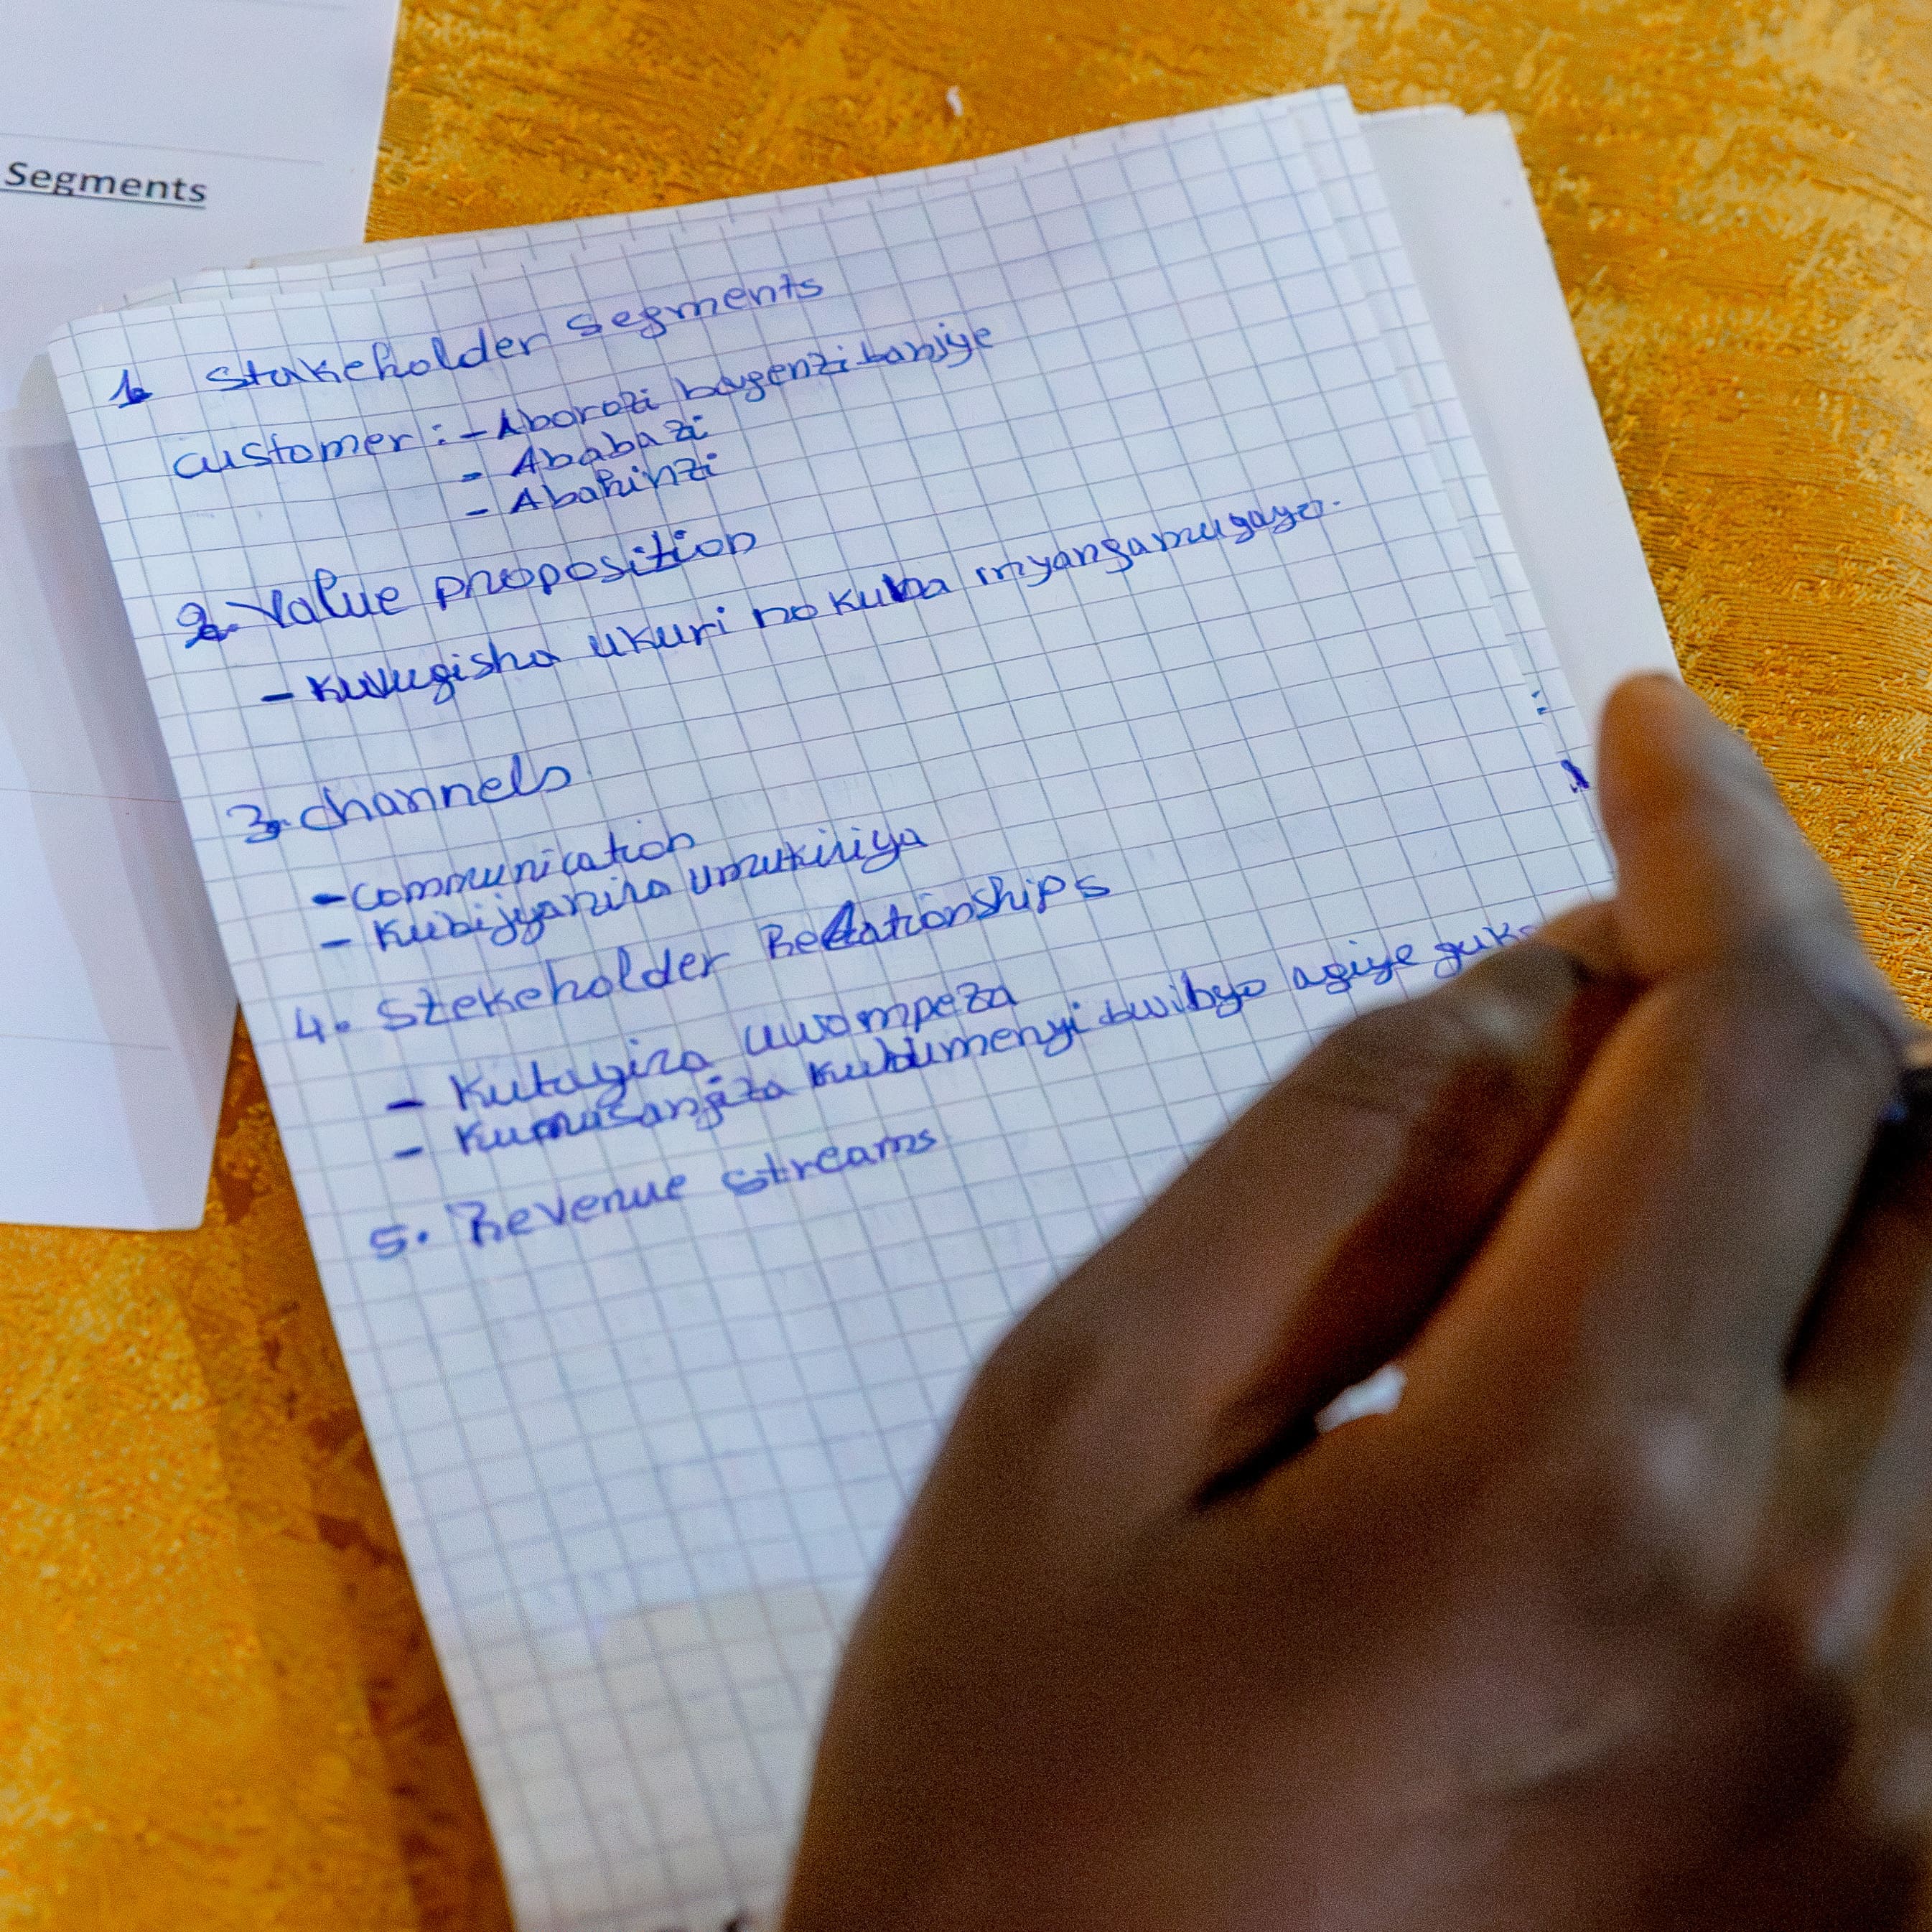 Segments
1. Stakeholder segments
customer : - Aborozi bagenzi banjye
- Ababazi
- Abahinzi
2. Value proposition
- Kuvugisha ukuri no kuba inyangamugayo.
3. channels
- communication
- Kubijyanira umukiriya
4. Stekeholder Relationships
- Kutagira uwo mpeza
- Kumusangiza kubumenyi bwibyo agiye
5. Revenue streams